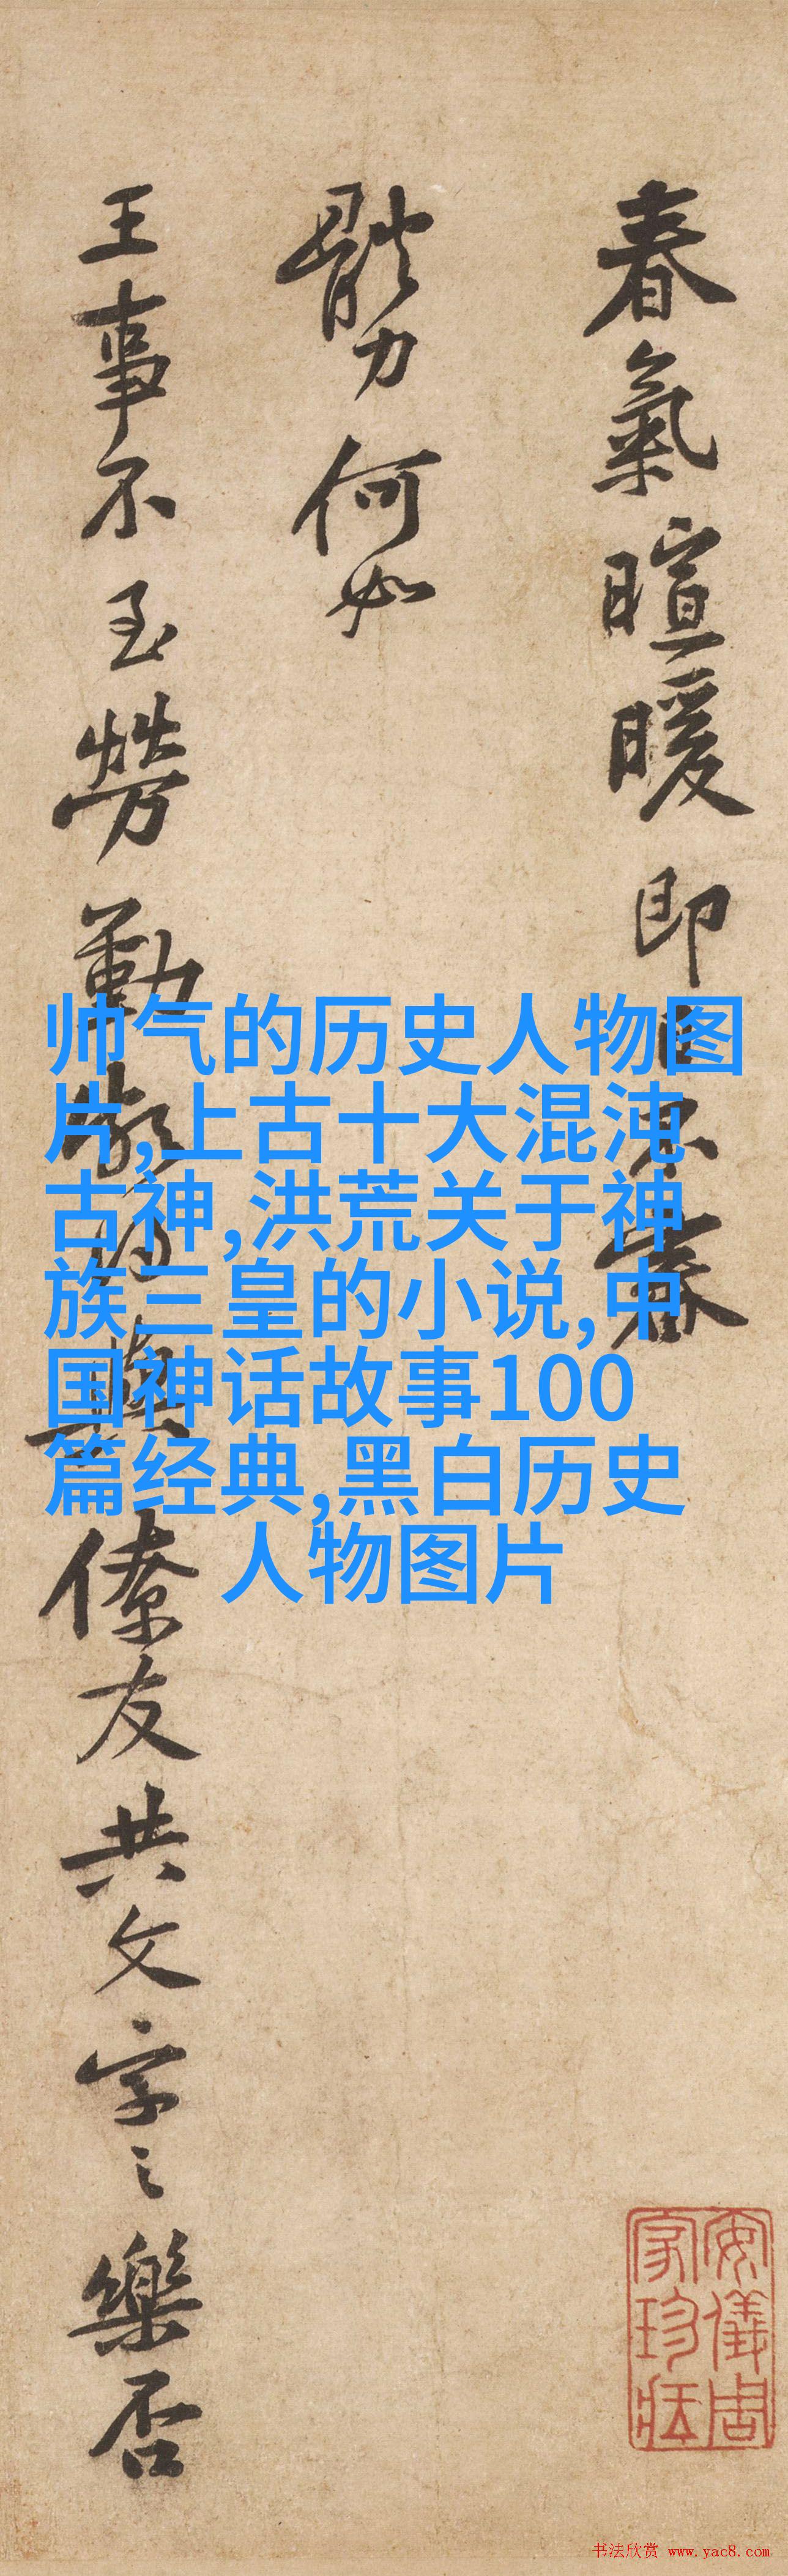 春氣暄暖即日不審
體力何如
王事不至勞勤
僚友共文字之樂否
帅气的历史人物图
片,上古十大混沌
古神,洪荒关于神
族三皇的小说,中
国神话故事100
篇经典,黑白历史
人物图片
安儀周
家珍藏
书法欣赏 www.yac8.com